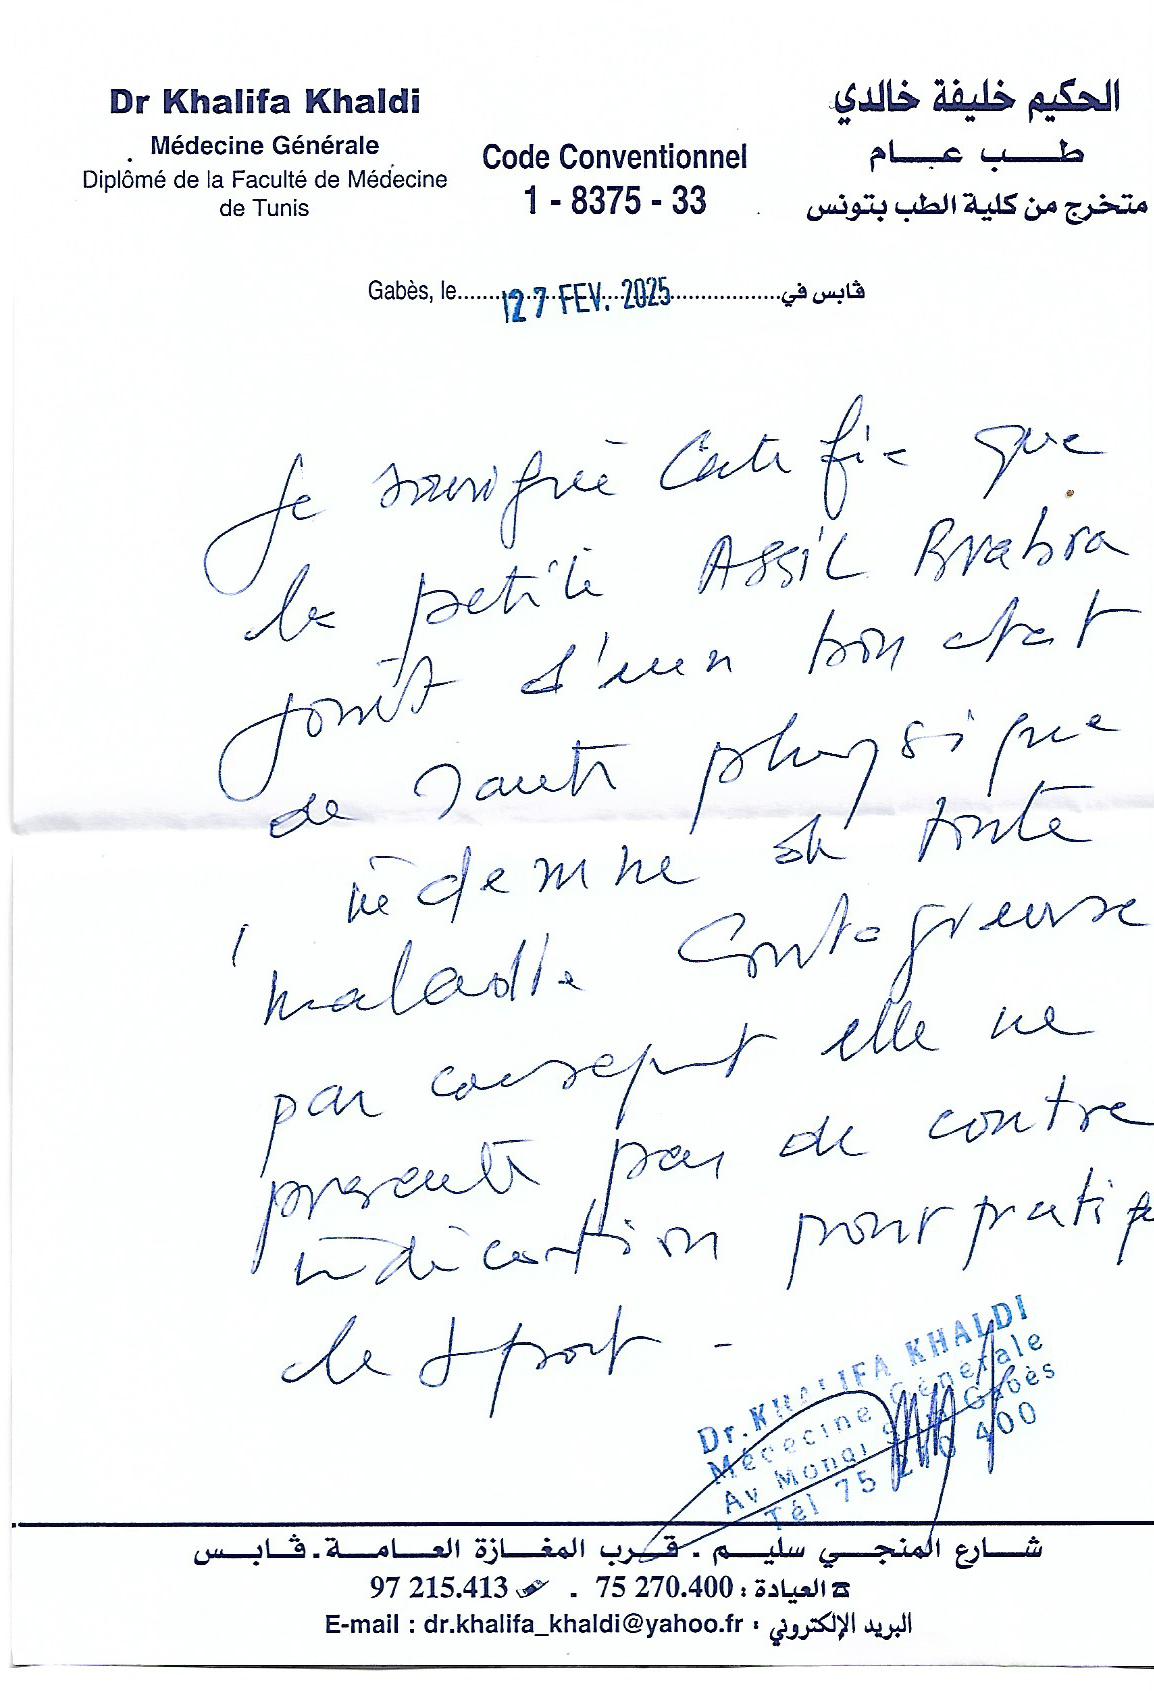 Dr Khalifa Khaldi
Médecine Générale
Diplômé de la Faculté de Médecine
de Tunis
Code Conventionnel
1 - 8375 - 33
الحكيم خليفة خالدي
طب عام
متخرج من كلية الطب بتونس
Gabès, le 27 FEV. 2025 ڨابس في
Je soussigné Certifie que
la petite Assil Brahra
jouit d'un bon etat
de santé physique
indemne de toute
maladie contagieuse
par consequent elle ne
presente pas de contre
indication pour pratiq
le sport -
Dr. KHALIFA KHALDI
Médecine Générale
Av Mongi Gabès
Tél 75 270 400
شارع المنجي سليم . قرب المغازة العامة . ڨابس
97 215.413 . 75 270.400 : العيادة
E-mail : dr.khalifa_khaldi@yahoo.fr : البريد الإلكتروني